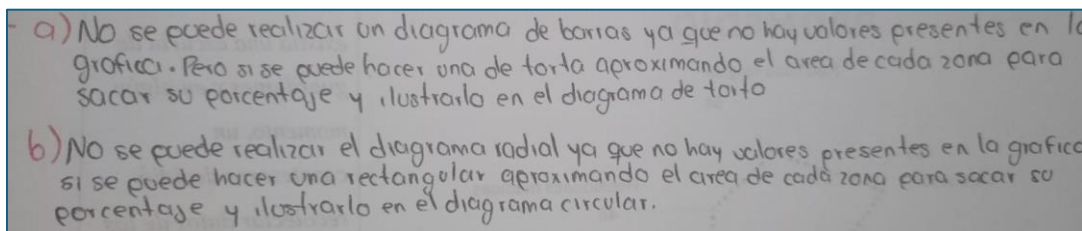 a) No se puede realizar un diagrama de barras ya que no hay valores presentes en
grafica. Pero si se puede hacer una de torta aproximando el area de cada zona para
sacar su porcentaje y ilustrarlo en el diagrama de torta
b) No se puede realizar el diagrama radial ya que no hay valores presentes en la grafica
si se puede hacer una rectangular aproximando el area de cada zona para sacar su
porcentaje y ilustrarlo en el diagrama circular.